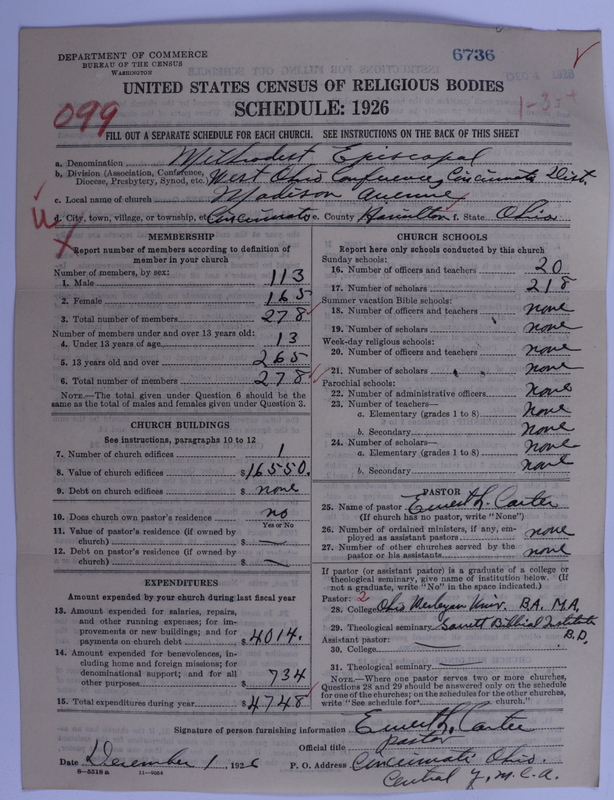 DEPARTMENT OF COMMERCE
BUREAU OF THE CENSUS
WASHINGTON
6736
UNITED STATES CENSUS OF RELIGIOUS BODIES
SCHEDULE: 1926
099
1-35+
FILL OUT A SEPARATE SCHEDULE FOR EACH CHURCH. SEE INSTRUCTIONS ON THE BACK OF THIS SHEET
a. Denomination Methodist Episcopal
b. Division (Association, Conference, Diocese, Presbytery, Synod, etc.) West Ohio Conference, Cincinnati Dist.
c. Local name of church Madison Avenue
d. City, town, village, or township, etc. Cincinnati e. County Hamilton f. State Ohio
MEMBERSHIP
Report number of members according to definition of
member in your church
Number of members, by sex:
1. Male 113
2. Female 165
3. Total number of members 278
Number of members under and over 13 years old:
4. Under 13 years of age 13
5. 13 years old and over 265
6. Total number of members 278
NOTE.—The total given under Question 6 should be
same as the total of males and females given under Question 3.
CHURCH BUILDINGS
See instructions, paragraphs 10 to 12
7. Number of church edifices 1
8. Value of church edifices $16550.
9. Debt on church edifices $ none
10. Does church own pastor's residence no
Yes or No
11. Value of pastor's residence (if owned by
church) $ —
12. Debt on pastor's residence (if owned by
church) $ —
EXPENDITURES
Amount expended by your church during last fiscal year
13. Amount expended for salaries, repairs,
and other running expenses; for im-
provements or new buildings; and for
payments on church debt $4014.
14. Amount expended for benevolences, in-
cluding home and foreign missions; for
denominational support; and for all
other purposes $ 734
15. Total expenditures during year $4748
CHURCH SCHOOLS
Report here only schools conducted by this church
Sunday schools:
16. Number of officers and teachers 20
17. Number of scholars 218
Summer vacation Bible schools:
18. Number of officers and teachers none
19. Number of scholars none
Week-day religious schools:
20. Number of officers and teachers none
21. Number of scholars none
Parochial schools:
22. Number of administrative officers none
23. Number of teachers—
a. Elementary (grades 1 to 8) none
b. Secondary none
24. Number of scholars—
a. Elementary (grades 1 to 8) none
b. Secondary none
PASTOR
25. Name of pastor Ernest L. Carter
(If church has no pastor, write "None")
26. Number of ordained ministers, if any, em-
ployed as assistant pastors none
27. Number of other churches served by the
pastor or his assistants none
If pastor (or assistant pastor) is a graduate of a college or
theological seminary, give name of institution below. (If
not a graduate, write "No" in the space indicated.)
Pastor: 2
28. College Ohio Wesleyan Univ. B.A. M.A.
29. Theological seminary Garrett Biblical Institute
B.D.
Assistant pastor:
30. College —
31. Theological seminary —
NOTE.—Where one pastor serves two or more churches,
Questions 28 and 29 should be answered only on the schedule
for one of the churches; on the schedules for the other churches,
write "See schedule for church."
Signature of person furnishing information Ernest L. Carter
Official title Pastor
Date December 1, 1926 P. O. Address Cincinnati Ohio.
8-5518a 11-9054
Central Y.M.C.A.